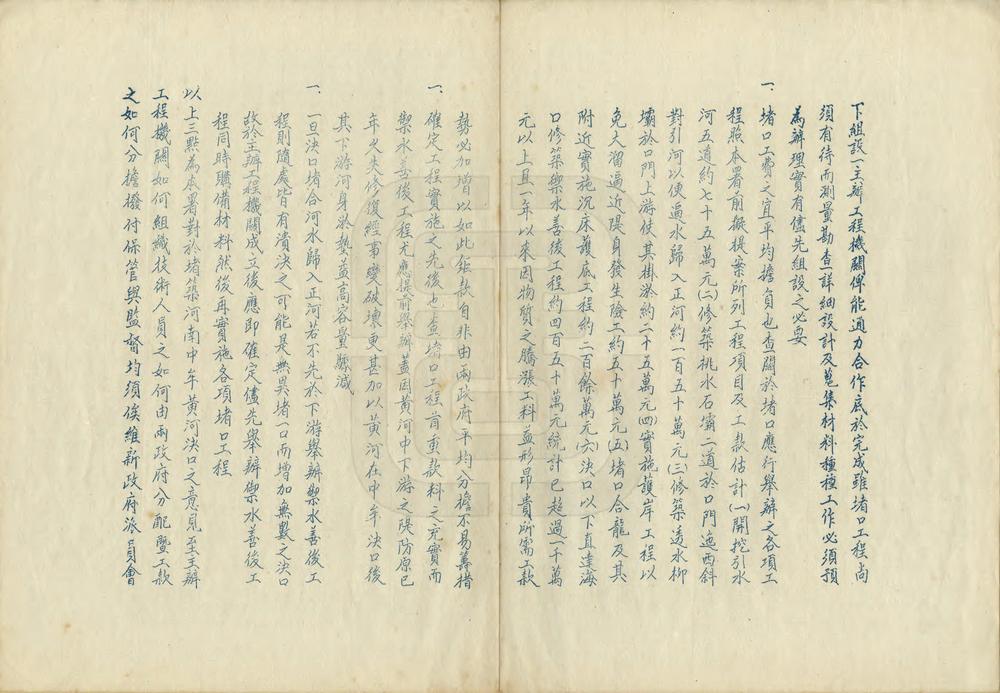 下組設一主辦工程機關俾能通力合作底於完成雖堵口工程尚
須有待而測量勘查詳細設計及蒐集材料種種工作必須預
為辦理實有儘先組設之必要
一、堵口工費之宜平均擔負也查關於堵口應行舉辦之各項工
程照本署前擬提案所列工程項目及工款估計(一)開挖引水
河五道約七十五萬元(二)修築挑水石壩二道於口門迤西斜
對引河以便逼水歸入正河約一百五十萬元(三)修築透水柳
壩於口門上游使其掛淤約二十五萬元(四)實施護岸工程以
免大溜逼近堤身發生險工約五十萬元(五)堵口合龍及其
附近實施沉床護底工程約二百餘萬元(六)決口以下直達海
口修築禦水善後工程約四百五十萬元統計已超過一千萬
元以上且一年以來因物質之騰漲工料益形昂貴所需工款
勢必加增以如此鉅款自非由兩政府平均分擔不易籌措
一、確定工程實施之先後也查堵口工程首重款料之充實而
禦水善後工程尤應提前舉辦蓋因黃河中下游之隄防原已
年久失修復經事變破壞更甚加以黃河在中牟決口後
其下游河身淤墊益高容量驟減
一、一旦決口堵合河水歸入正河若不先於下游舉辦禦水善後工
程則隨處皆有潰決之可能是無異堵一口而增加無數之決口
故於主辦工程機關成立後應即確定儘先舉辦禦水善後工
程同時購備材料然後再實施各項堵口工程
以上三點為本署對於堵築河南中牟黃河決口之意見至主辦
工程機關如何組織技術人員之如何由兩政府分配暨工款
之如何分擔撥付保管與監督均須俟維新政府派員會